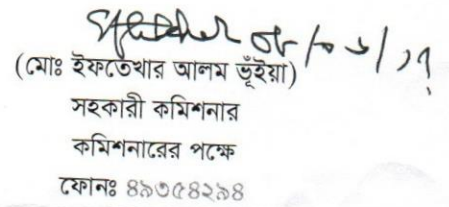 (মোঃ ইফতেখার আলম ভূঁইয়া)
সহকারী কমিশনার
কমিশনারের পক্ষে
ফোনঃ ৪৯৩৫৪২৯৪